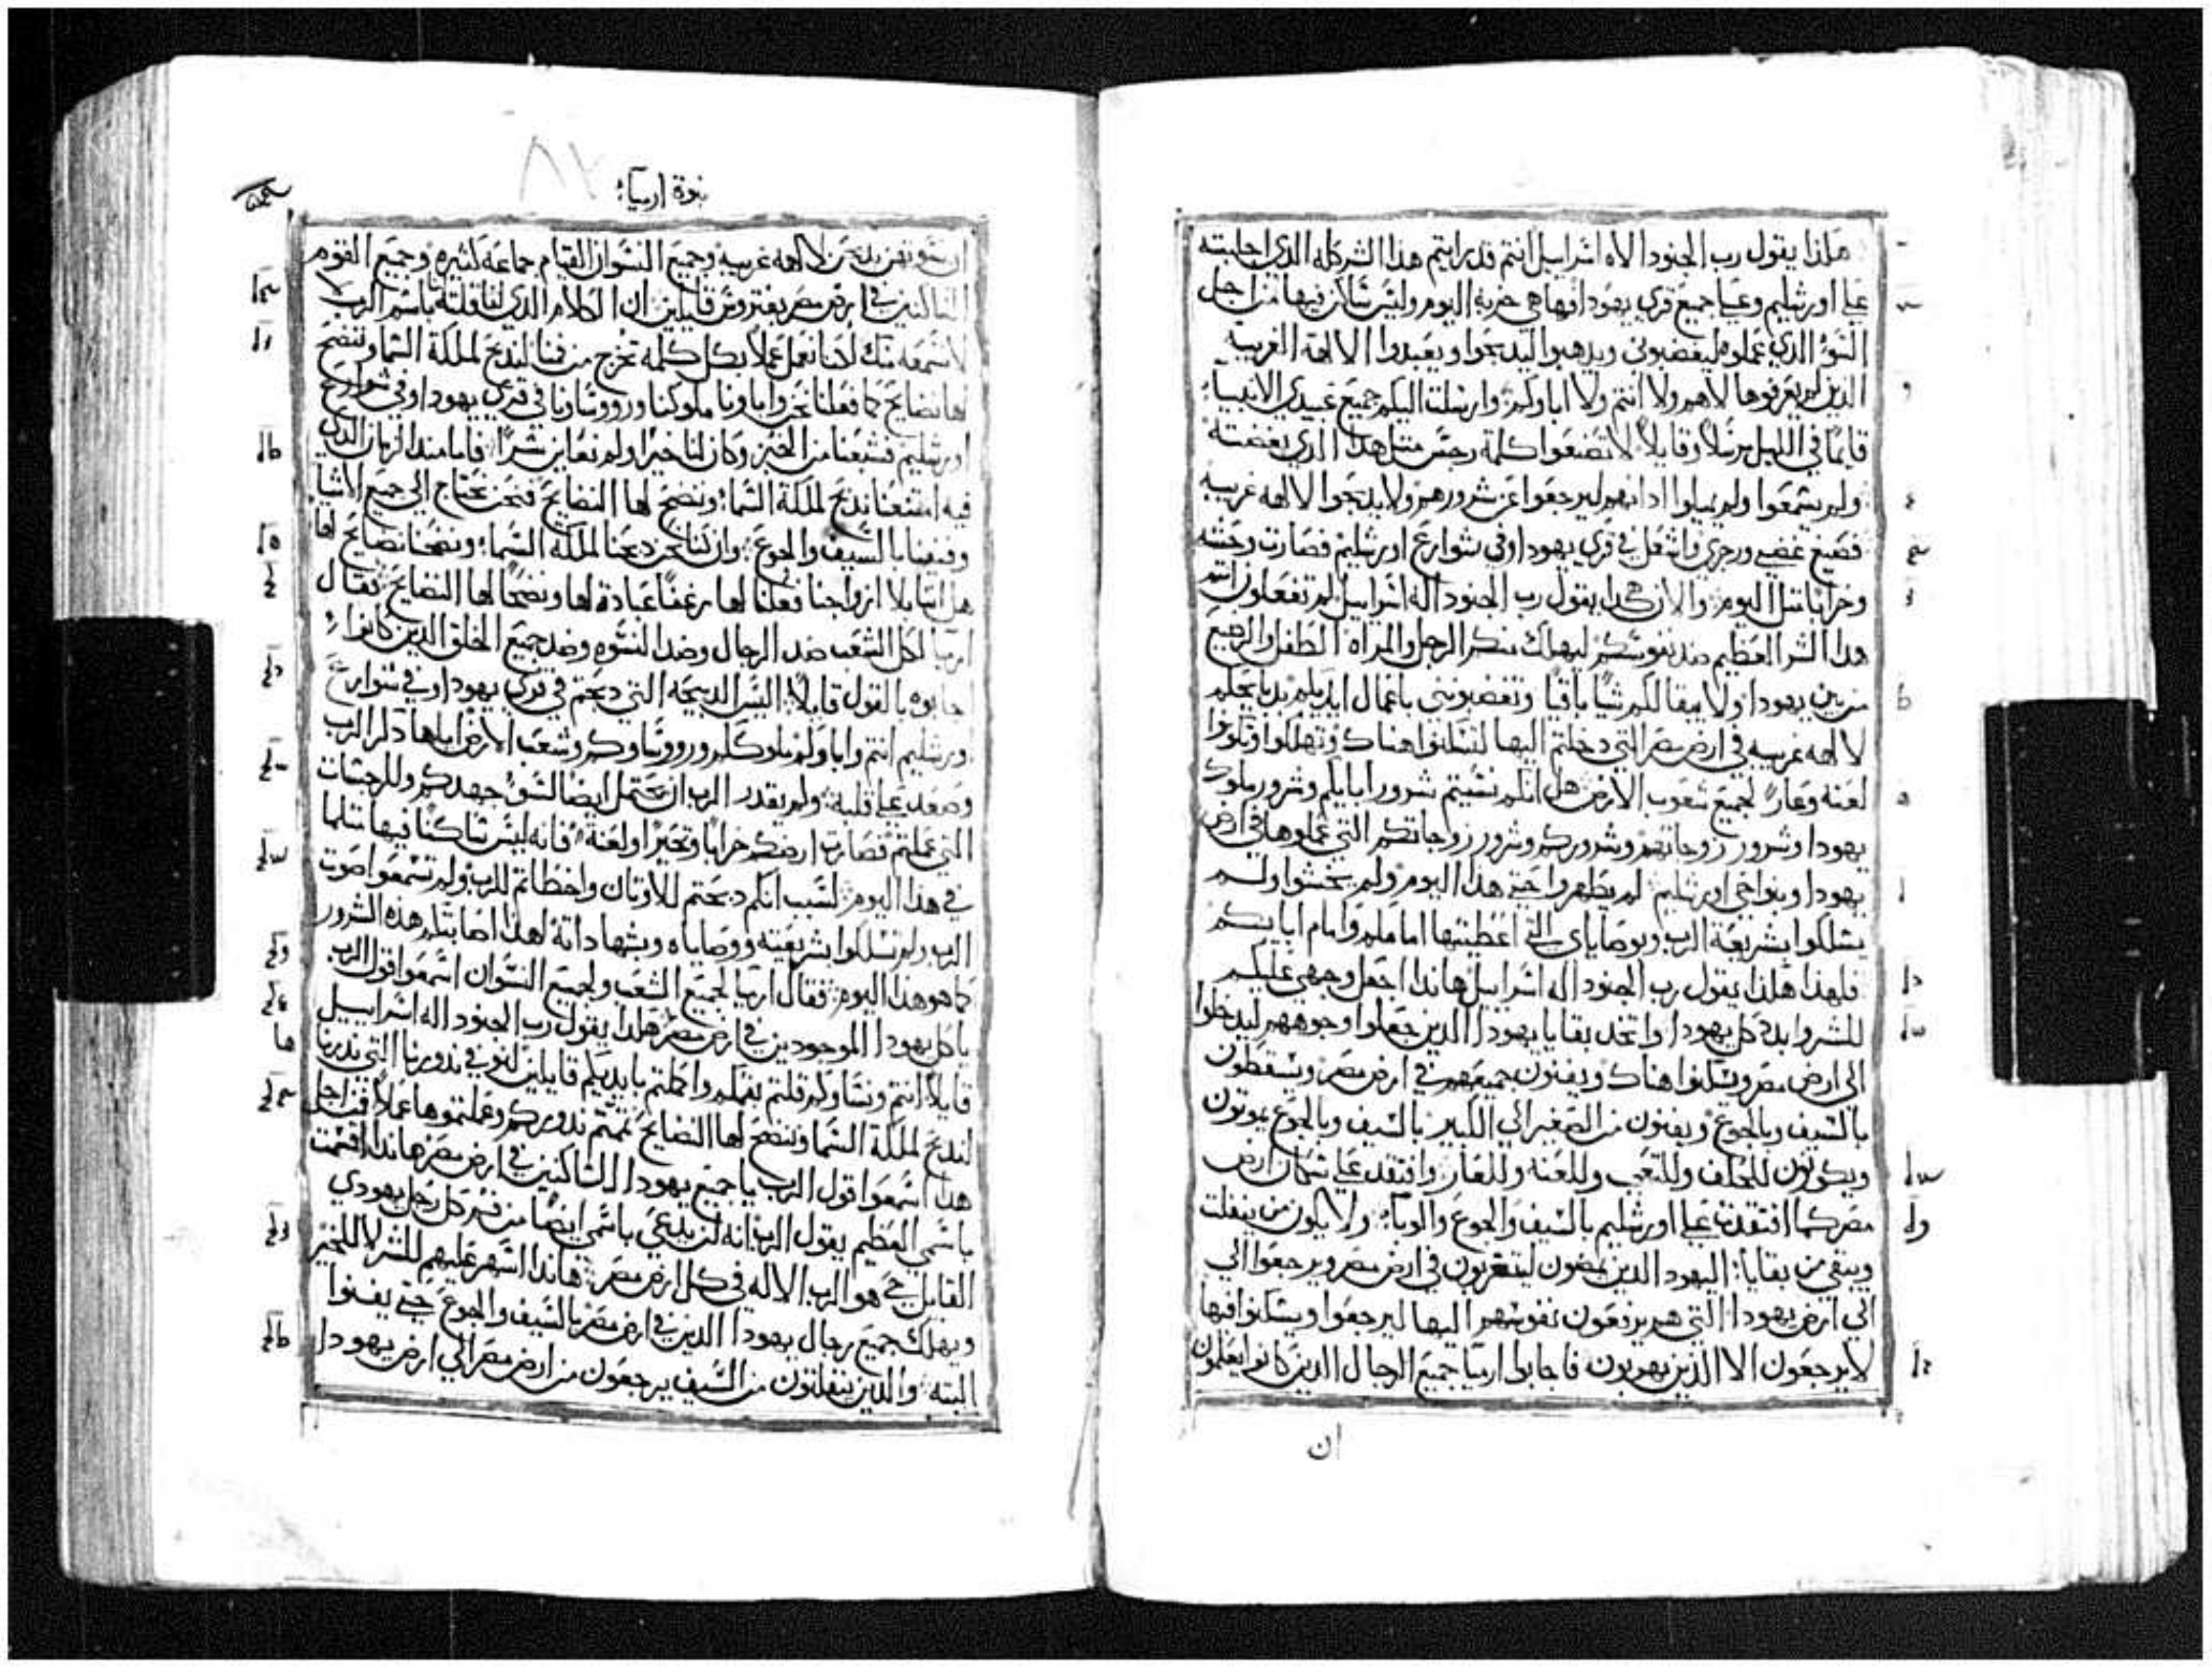 هكذا يقول رب الجنود الاه اسراييل انتم قد رايتم هذا الشر كله الذي اجلبته
علي اورشليم وعلي جميع قري يهودا فها هي خربه اليوم وليس ساكن فيها من اجل
السوء الذي عملوه ليغضبوني ويدهبوا ليدبحوا ويعبدوا الالهة الغريبه
الذين لم يعرفوها لاهم ولا انتم ولا اباوكم وارسلت اليكم جميع عبيدي الانبياء
قايما في الليل مرسلا وقايلا لا تصنعوا كلمة رجس مثل هذا الذي بغضته
ولم يسمعوا ولم يميلوا ادانهم ليرجعوا عن شرورهم ولا يدبحوا لالهه غريبه
غضبي ورجزي واشتعل في قري يهودا وفي شوارع اورشليم فصارت وحشه
وخرابا مثل اليوم والان هكدا يقول رب الجنود اله اسراييل لم تفعلون انتم
هدا الشر العظيم ضد نفوسكم ليهلك منكم الرجل والمراه الطفل والرضيع
من بين يهودا ولا يبقا لكم شيا باقيا وتغضبونني باعمال ايديكم بدبايحكم
لالهه غريبه في ارض مصر التي دخلتم اليها لتسكنوا هناك وتهلكوا وتكونوا
لعنه وعارا لجميع شعوب الارض هل انكم نسيتم شرور ابايكم وشرور ملوك
يهودا وشرور زوجاتهم وشروركم وشرور زوجاتكم التي عملوها في ارض
يهودا ونواحي اورشليم لم يطهروا حتي هذا اليوم ولم يخشوا ولم
يسلكوا بشريعة الرب وبوصاياي التي اعطيتها امامكم وامام ابايكم
فلهذا هكذا يقول رب الجنود اله اسراييل هاندا اجعل وجهي عليكم
للشر وابدد كل يهودا واتخد بقايا يهودا الدين جعلوا وجوههم ليدخلوا
الي ارض مصر ويسكنوا هناك ويفنون جميعهم في ارض مصر ويسقطون
بالسيف وبالجوع ويفنون من الصغير الي الكبير بالسيف وبالجوع يموتون
ويكونون للحلف وللتعجب وللعنه وللعار وافتقد علي سكان ارض
مصر كما افتقدت علي اورشليم بالسيف والجوع والوباء ولا يكون من ينفلت
ويبقي من بقايا اليهود الدين يمضون ليتغربون في ارض مصر ويرجعوا الي
الي ارض يهودا التي هم يرفعون نفوسهم اليها ليرجعوا ويسكنوا فيها
لا يرجعون الا الذين يهربون فاجابوا ارميا جميع الرجال الدين كانوا يعلمون
ان
نبوة ارمياء
ان نسوتهن يدبحن لالهه غريبه وجميع النسوان القيام جماعه كثيره وجميع القوم
الساكنين في ارض مصر قايلين ان الكلام الدي لنا قلته باسم الرب
لا نسمعه منك لكننا نعمل عملا بكل كلمه تخرج من فمنا لندبح لملكة السما وننضح
لها نضايح كما فعلنا نحن واباونا وملوكنا وروساونا في قري يهودا وفي شوارع
اورشليم فشبعنا من الخبز وكان لنا خيرا ولم نعاين شرا فاما مند الزمان الدي
فيه امتنعنا ندبح لملكة السما وننضح لها النضايح فنحن نحتاج الي جميع الاشيا
وفنينا بالسيف والجوع وان كنا نحن دبحنا لملكة السما ونضحنا نضايح لها
هل اننا بلا ازواجنا فعلنا لها رغفا عبادة لها ونضحنا لها النضايح فقال
ارميا لكل الشعب ضد الرجال وضد النسوه وضد جميع الخلق الدين كانوا
اجابوه بالقول قايلا اليس الدبيحه التي دبحتم في قري يهودا وفي شوارع
اورشليم انتم واباوكم وملوككم وروساوكم وشعب الارض اياها دكر الرب
وصعد علي قلبه ولم يقدر الرب ان يحتمل ايضا لسوء جهدكم وللرجسات
التي عملتم فصارت ارضكم خرابا وتحيرا ولعنة فانه ليس ساكنا فيها مثلما
في هدا اليوم لسبب انكم دبحتم للاوتان واخطاتم للرب ولم تسمعوا صوت
الرب ولم تسلكوا بشريعته ووصاياه وبشهاداته لهذا اصابتكم هذه الشرور
كما هو هذا اليوم فقال ارميا لجميع الشعب ولجميع النسوان اسمعوا قول الرب
يا كل يهودا الموجودين في ارض مصر هكدا يقول رب الجنود اله اسراييل
قايلا انتم ونساوكم قلتم بفمكم واكملتم بايديكم قايلين نوفي ندورنا التي ندرنا
لندبح لملكة السما وننضح لها النضايح تممتم ندوركم وعملتموها عملا فمن اجل
هدا اسمعوا قول الرب يا جميع يهودا الساكنين في ارض مصر هاندا اقسمت
باسمي العظيم يقول الرب انه لن يدعي باسمي ايضا من فم كل رجل يهودي
القايل حي هو الرب الاله في كل ارض مصر هاندا اسهر عليهم للشر لا للخير
ويهلك جميع رجال يهودا الدين في ارض مصر بالسيف والجوع حتي يفنوا
البته والدين ينفلتون من السيف يرجعون من ارض مصر الي ارض يهودا